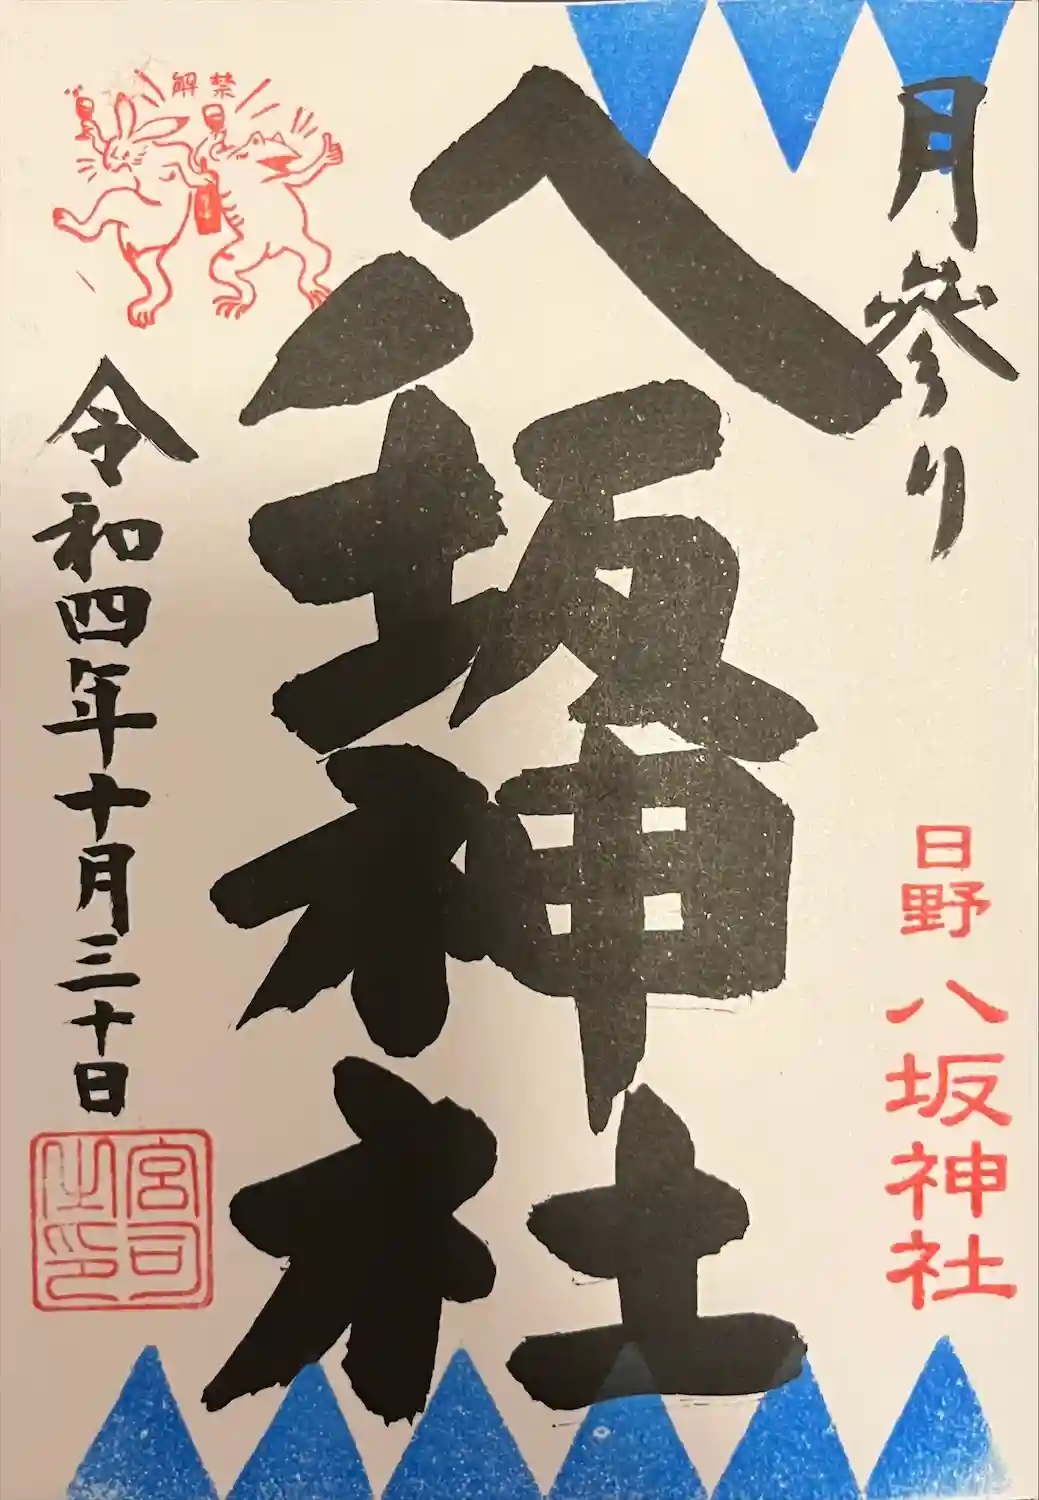 月参り
日野 八坂神社
八坂神社
解禁
令和四年十月三十日
宮司
之印